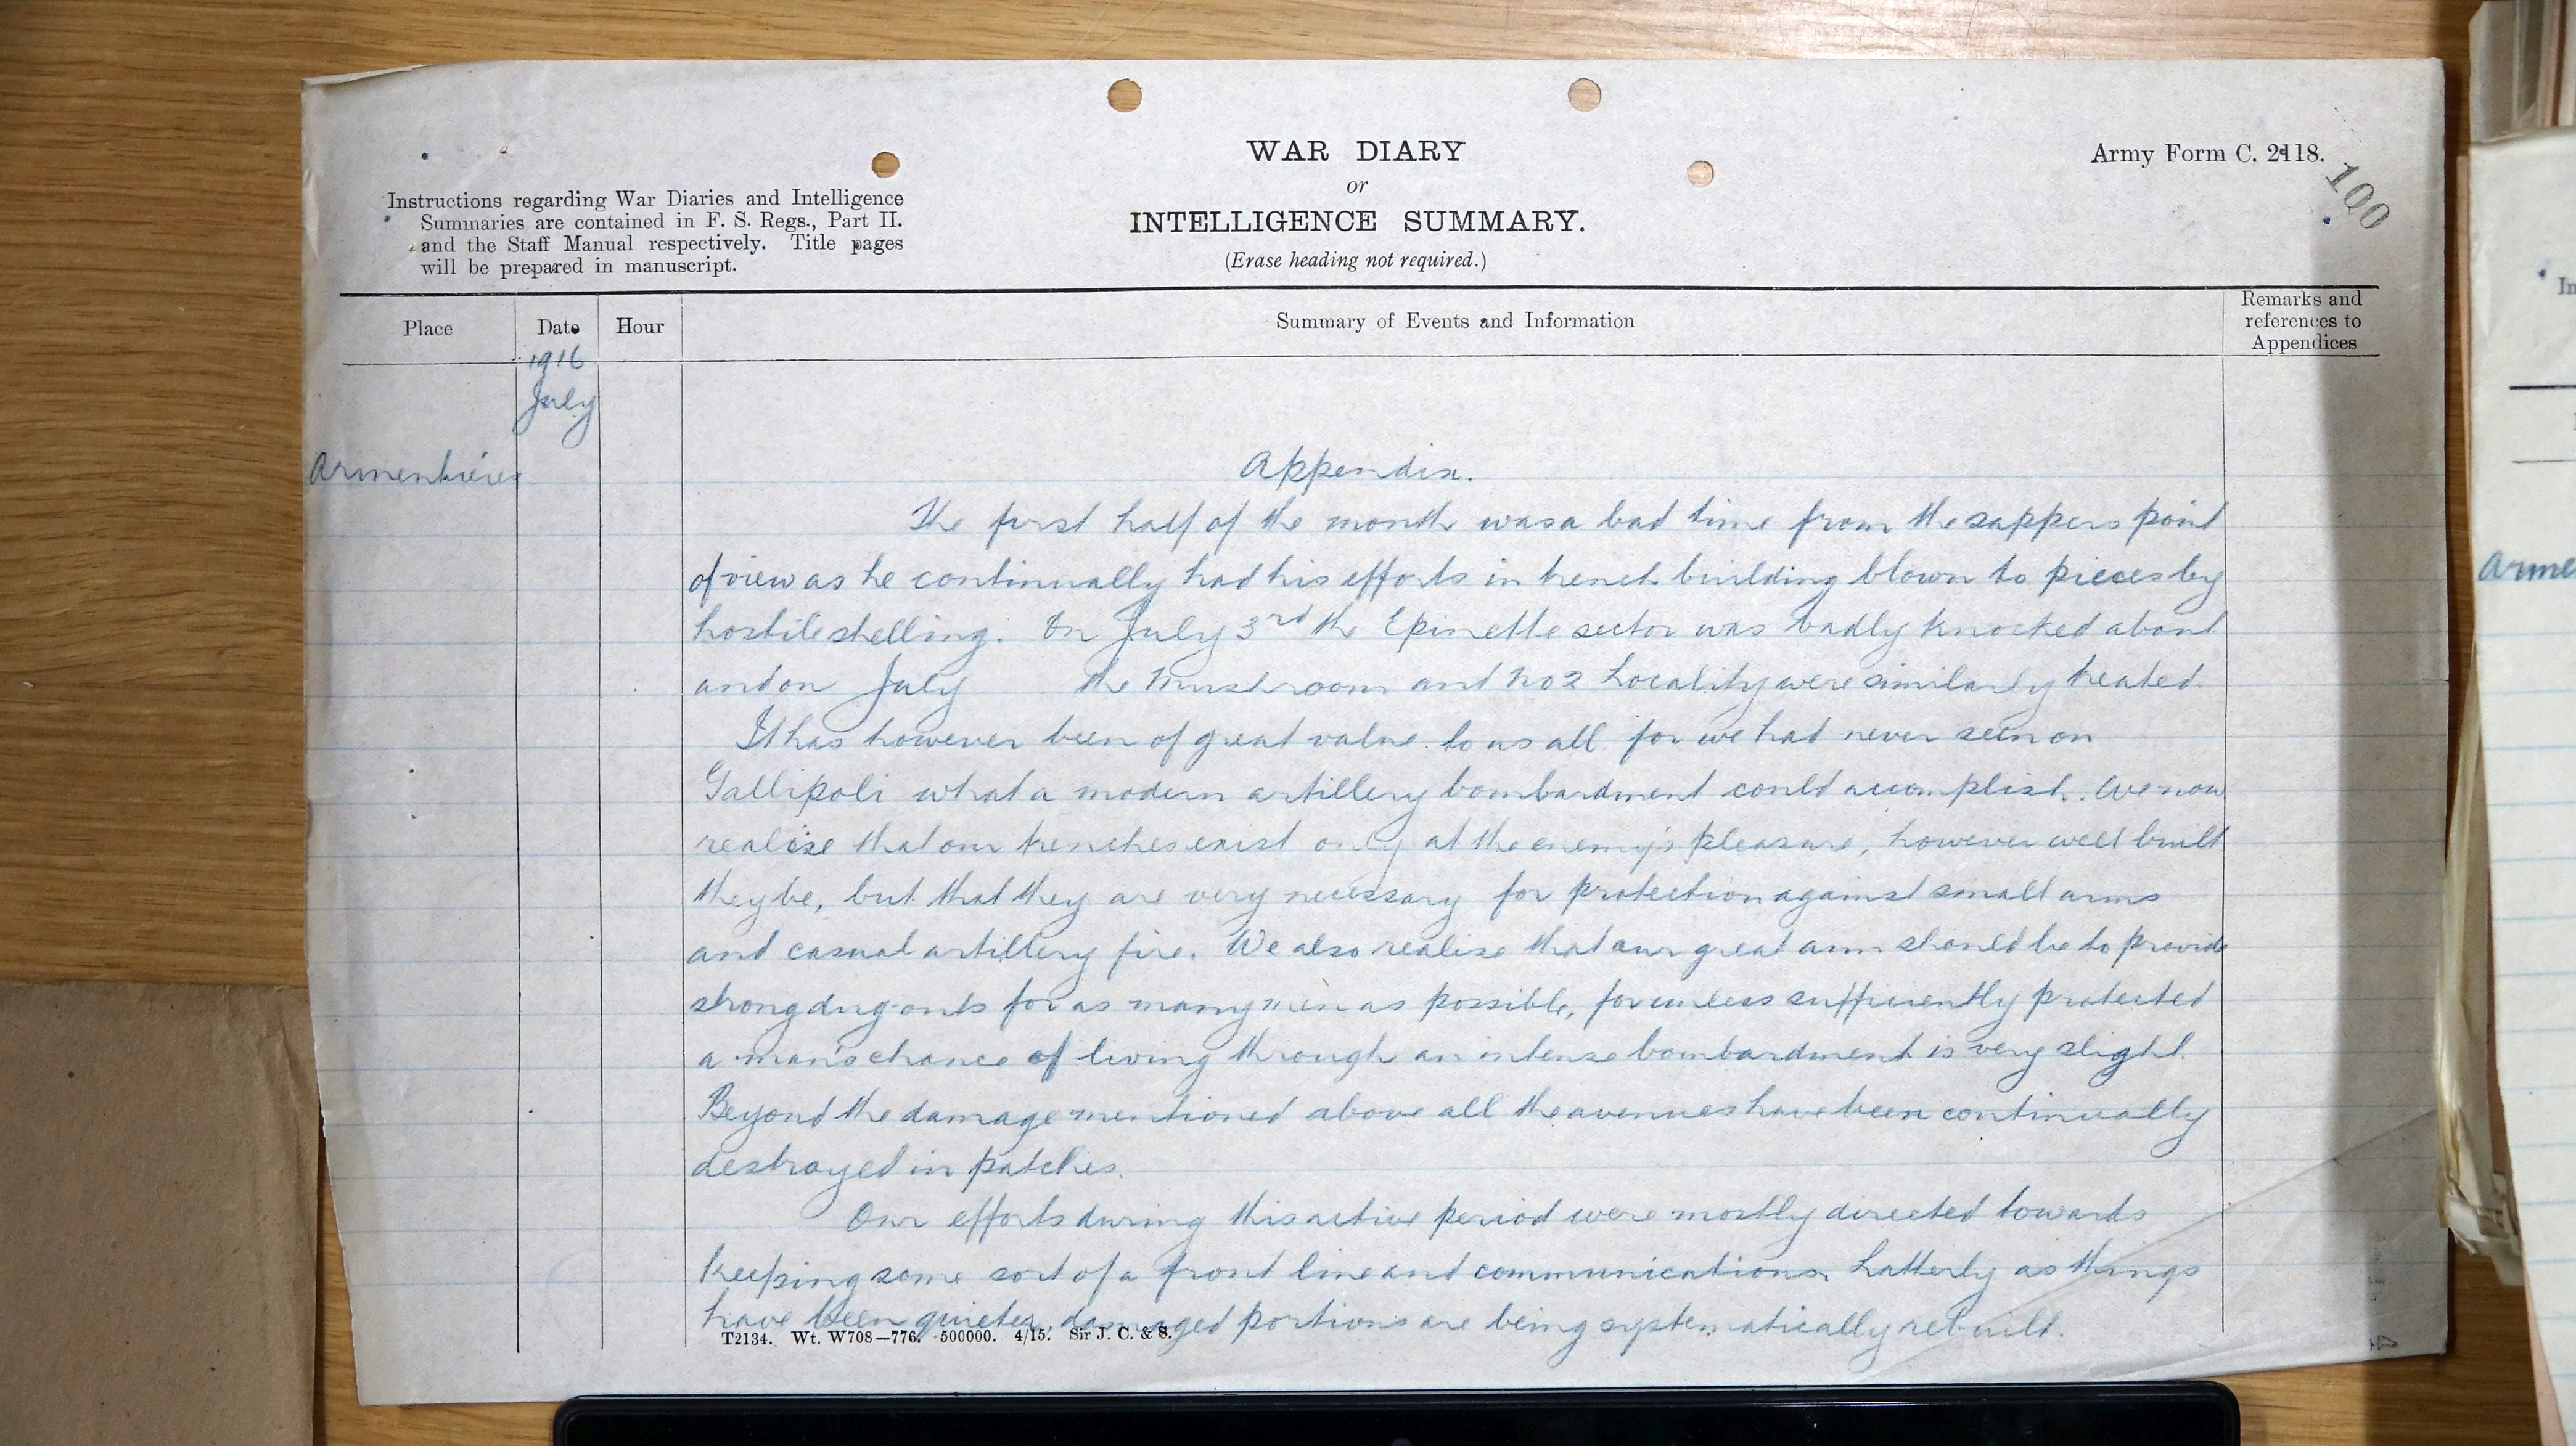 WAR DIARY
or
INTELLIGENCE SUMMARY.
(Erase heading not required.)
Army Form C. 2118.
100
Instructions regarding War Diaries and Intelligence
Summaries are contained in F. S. Regs., Part II.
and the Staff Manual respectively. Title pages
will be prepared in manuscript.
Place Date Hour Summary of Events and Information Remarks and references to Appendices
1916
July
Armentières
Appendix.
The first half of the month was a bad time from the sappers point
of view as he continually had his efforts in trench building blown to pieces by
hostile shelling. On July 3rd the Epinette sector was badly knocked about
and on July the Mushroom and No 2 Locality were similarly treated.
It has however been of great value to us all for we had never seen on
Gallipoli what a modern artillery bombardment could accomplish. We now
realise that our trenches exist only at the enemy's pleasure, however well built
they be, but that they are very necessary for protection against small arms
and casual artillery fire. We also realise that our great aim should be to provide
strong dug-outs for as many men as possible, for unless sufficiently protected
a man's chance of living through an intense bombardment is very slight.
Beyond the damage mentioned above all the avenues have been continually
destroyed in patches.
Our efforts during this active period were mostly directed towards
keeping some sort of a front line and communications. Latterly as things
have been quieter, damaged portions are being systematically rebuilt.
T2134. Wt. W708—776. 500000. 4/15. Sir J. C. & S.
Arme